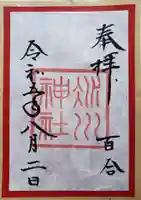 奉拝
百合
氷川
神社
令和五年八月二日